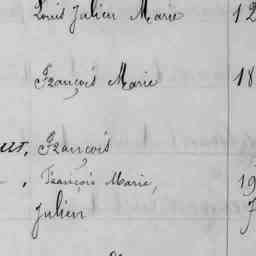 Louis Julien Marie 12
François Marie 18
François
François Marie, 19
Julien 7